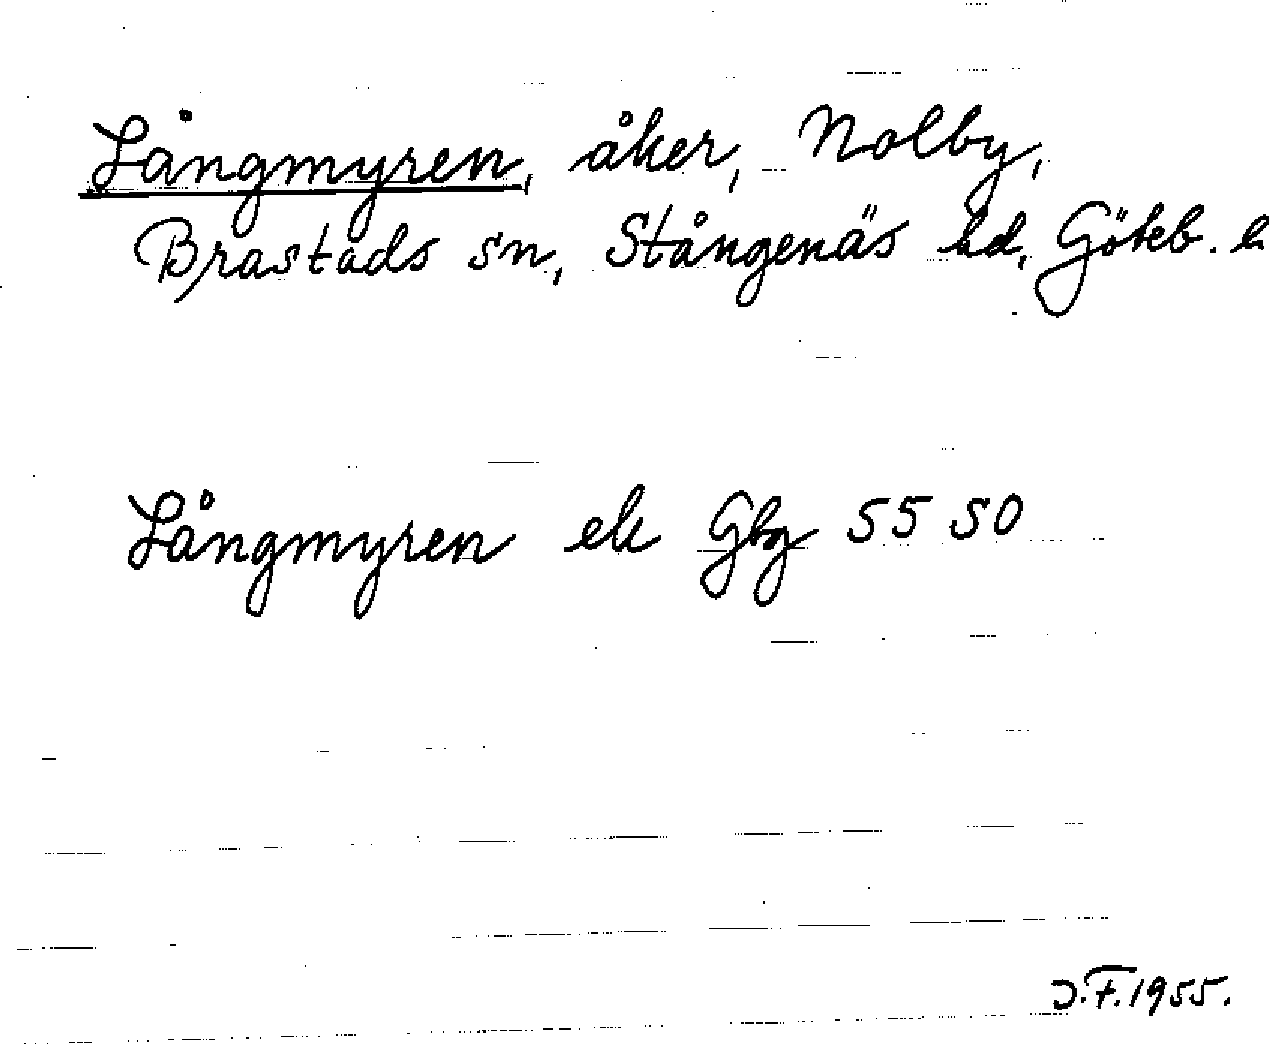 Långmyren, åker, Nolby,
Brastads sn, Stångenäs hd, Göteb. l
Långmyren ek Gbg 55 50
J.F. 1955.